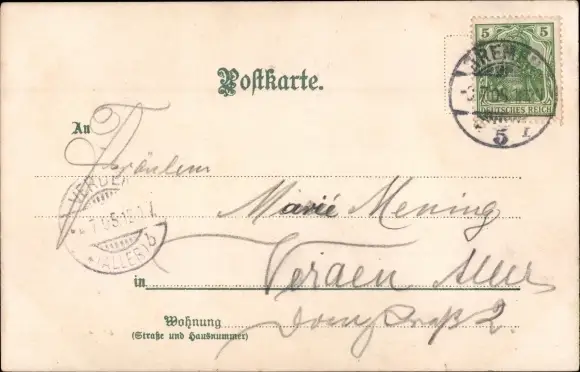 Postkarte.
5 5
DEUTSCHES REICH
BREMEN
5 I
An
Fräulein
Marie Mening
VERDEN
(ALLER) b
in Verden Aller
Wohnung
(Straße und Hausnummer)
2.